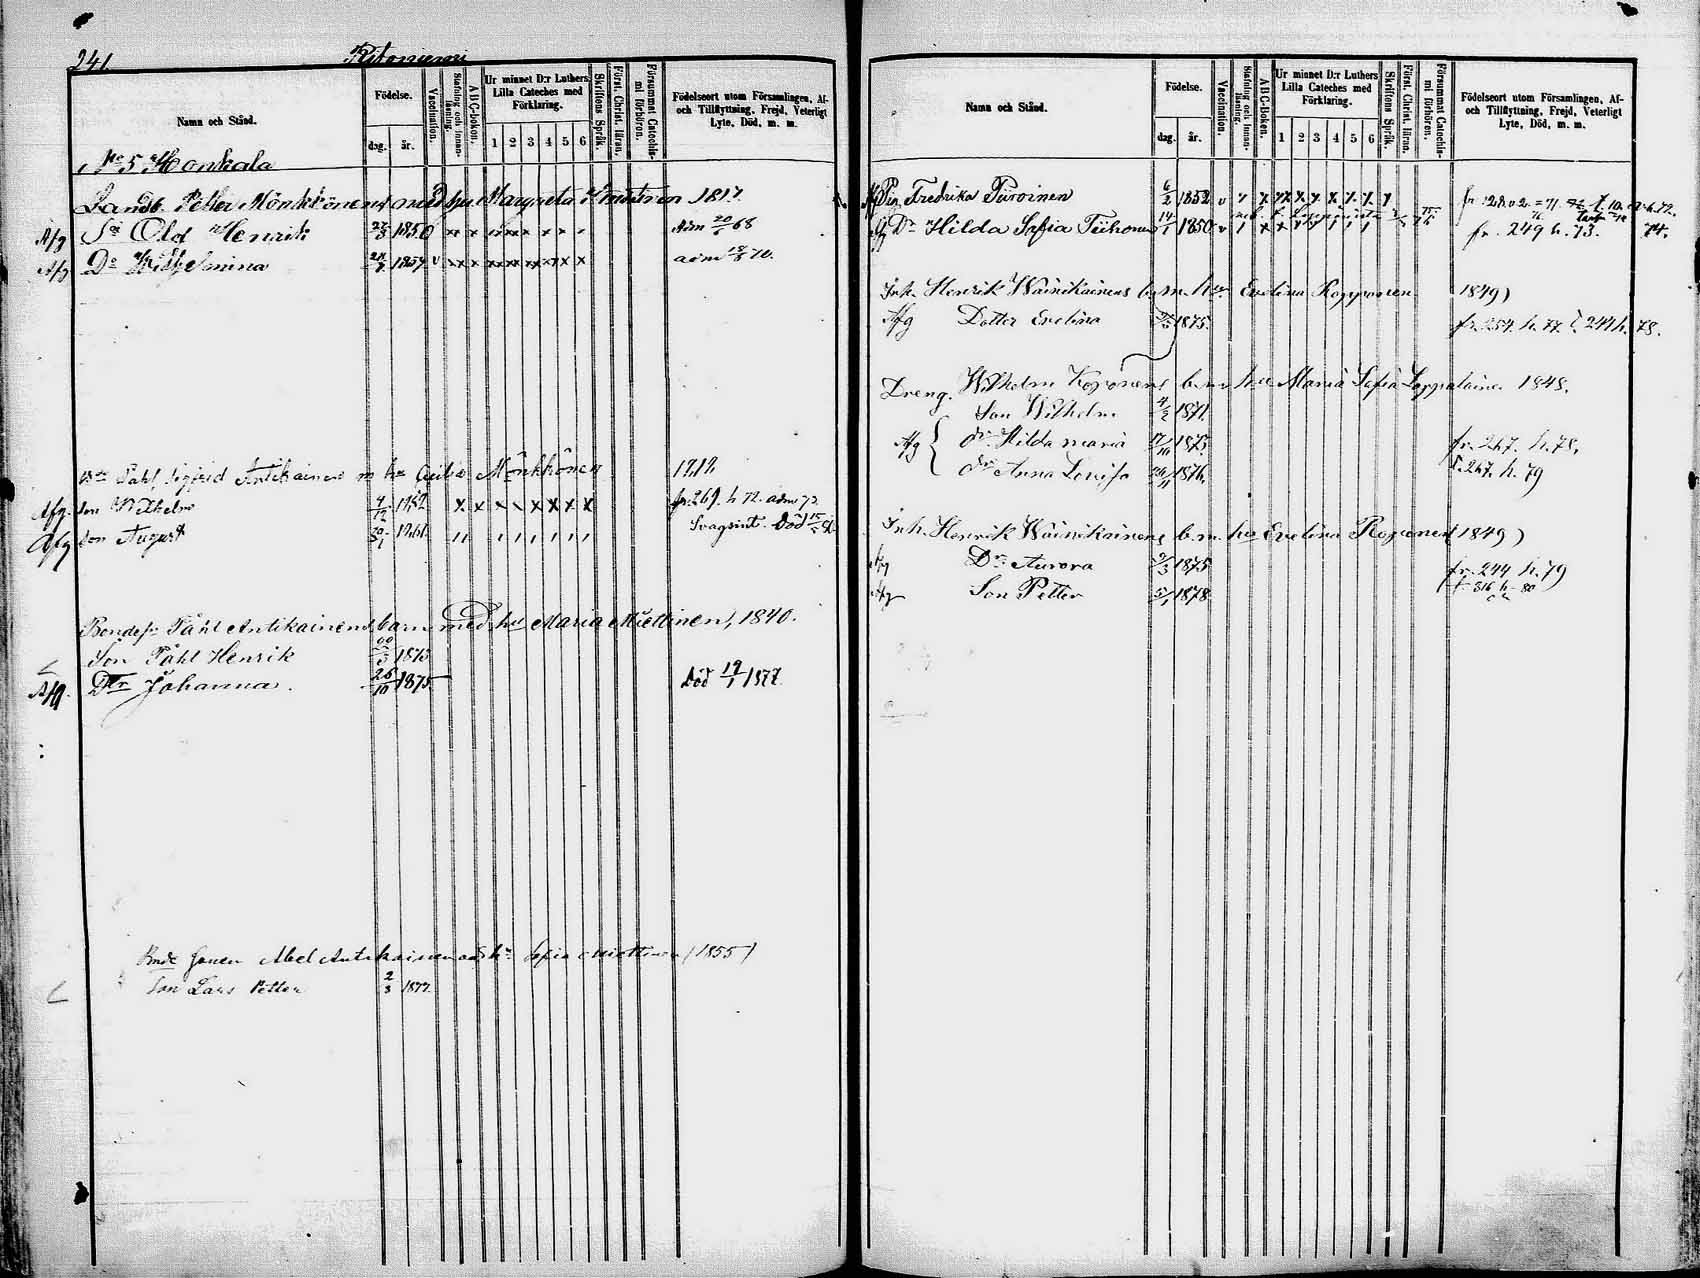 241.
Ritoniemi
Namn och Stånd.
Födelse.
dag. år.
Vaccination.
Stafning och Innanläsning.
A B C-boken.
Ur minnet D:r Luthers Lilla Cateches med Förklaring.
1 2 3 4 5 6
Skriftens Språk.
Först. Christ. läran.
Försummat Catechismi förhören.
Födelseort utom Församlingen, Af- och Tillflyttning, Frejd, Veterligt Lyte, Död, m. m.
No 5 Honkala
Landb. Petter Mönkkönens med hu Margreta 1817.
Afg Son Olof Henrik 1850 v x x x x x x x x x Adm 20/6 68
Afg Dr Wilhelmina 1854 v x x x x x x x x x adm 18/6 70.
Påhl Sigfrid Antikainen m hu Cecilia Mönkkönen 1212
Afg. Son Wilhelm 4/12 1852 x x x x x x x x fr. 269. h 72. adm 72
Afg Son August 30/1 1861 Svagsint. Död 15/5
Påhl Antikainens barn med hu Maria Miettinen, 1840.
Son Påhl Henrik 1873
Afg. Dtr Johanna. 26/10 1875 Död 19/1 1877.
Abel Antikainen och hu Sofia Miettinen (1855)
Son Lars Petter 2/3 1877.
Namn och Stånd.
Födelse.
dag. år.
Vaccination.
Stafning och Innanläsning.
A B C-boken.
Ur minnet D:r Luthers Lilla Cateches med Förklaring.
1 2 3 4 5 6
Skriftens Språk.
Först. Christ. läran.
Försummat Catechismi förhören.
Födelseort utom Församlingen, Af- och Tillflyttning, Frejd, Veterligt Lyte, Död, m. m.
Pig. Fredrika Piiroinen 6/2 1852 v x x x x x x x x
Afg Dr Hilda Sofia Tiihonen 14/1 1850 v fr. 249 h. 73. 74.
Inh. Henrik Wäinikäinens b. m. hu Evelina Ropponen 1849)
Afg Dotter Evelina 1875. fr. 254. h. 77. t. 244 h. 78.
Dreng. Wilhelm Koponens b. m. hu Maria Sofia Lappalainen 1848.
Son Wilhelm 4/2 1871.
Afg { dr. Hilda maria 17/10 1873 fr. 267. h. 78.
dr. Anna Lovisa 1876. t. 267. h. 79
Inh. Henrik Wäinikäinens b. m. hu Evelina Roponen (1849)
Afg Dr. Aurora 2/3 1875 fr. 244 h. 79
Afg Son Petter 5/1 1878 t. 316 h. 80